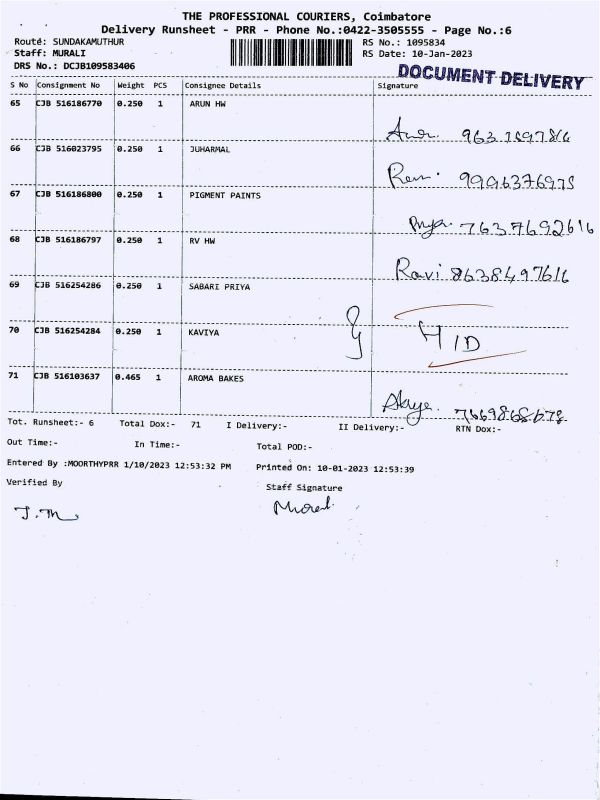 THE PROFESSIONAL COURIERS, Coimbatore
Delivery Runsheet - PRR - Phone No.:0422-3505555 - Page No.:6
Route: SUNDAKAMUTHUR RS No.: 1095834
Staff: MURALI RS Date: 10-Jan-2023
DRS No.: DCJB109583406
DOCUMENT DELIVERY
S No Consignment No Weight PCS Consignee Details Signature
65 CJB 516186770 0.250 1 ARUN HW
66 CJB 516023795 0.250 1 JUHARMAL
67 CJB 516186800 0.250 1 PIGMENT PAINTS
Priya 7637692616
68 CJB 516186797 0.250 1 RV HW
Ravi 8638497616
69 CJB 516254286 0.250 1 SABARI PRIYA
70 CJB 516254284 0.250 1 KAVIYA
H/D
71 CJB 516103637 0.465 1 AROMA BAKES
Tot. Runsheet:- 6 Total Dox:- 71 I Delivery:- II Delivery:- RTN Dox:-
Out Time:- In Time:- Total POD:-
Entered By :MOORTHYPRR 1/10/2023 12:53:32 PM Printed On: 10-01-2023 12:53:39
Verified By Staff Signature